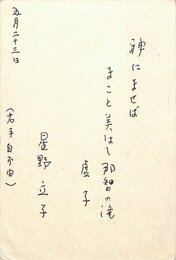 神にませば
まこと美はし那智の滝
虚子
星野立子
(右手自不由)
五月二十三日